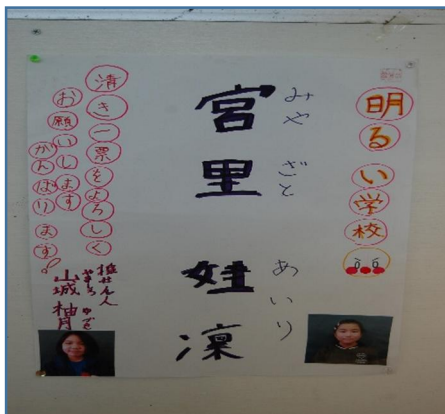 明るい学校
みやざと あいり
宮里 娃凜
清き一票をよろしく
お願いします
がんばります!
推せん人
やましろ ゆづき
山城 柚月